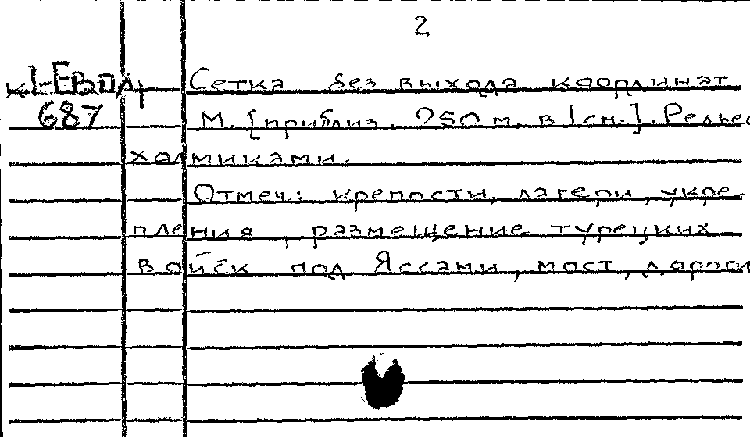 2
к1-Европ
687
Сетка без выхода координат
М. [приблиз. 250 м. в 1 см.]. Рельеф
холмиками.
Отмеч.: крепости, лагери, укре
пления, размещение турецких
войск под Яссами, мост, дороги